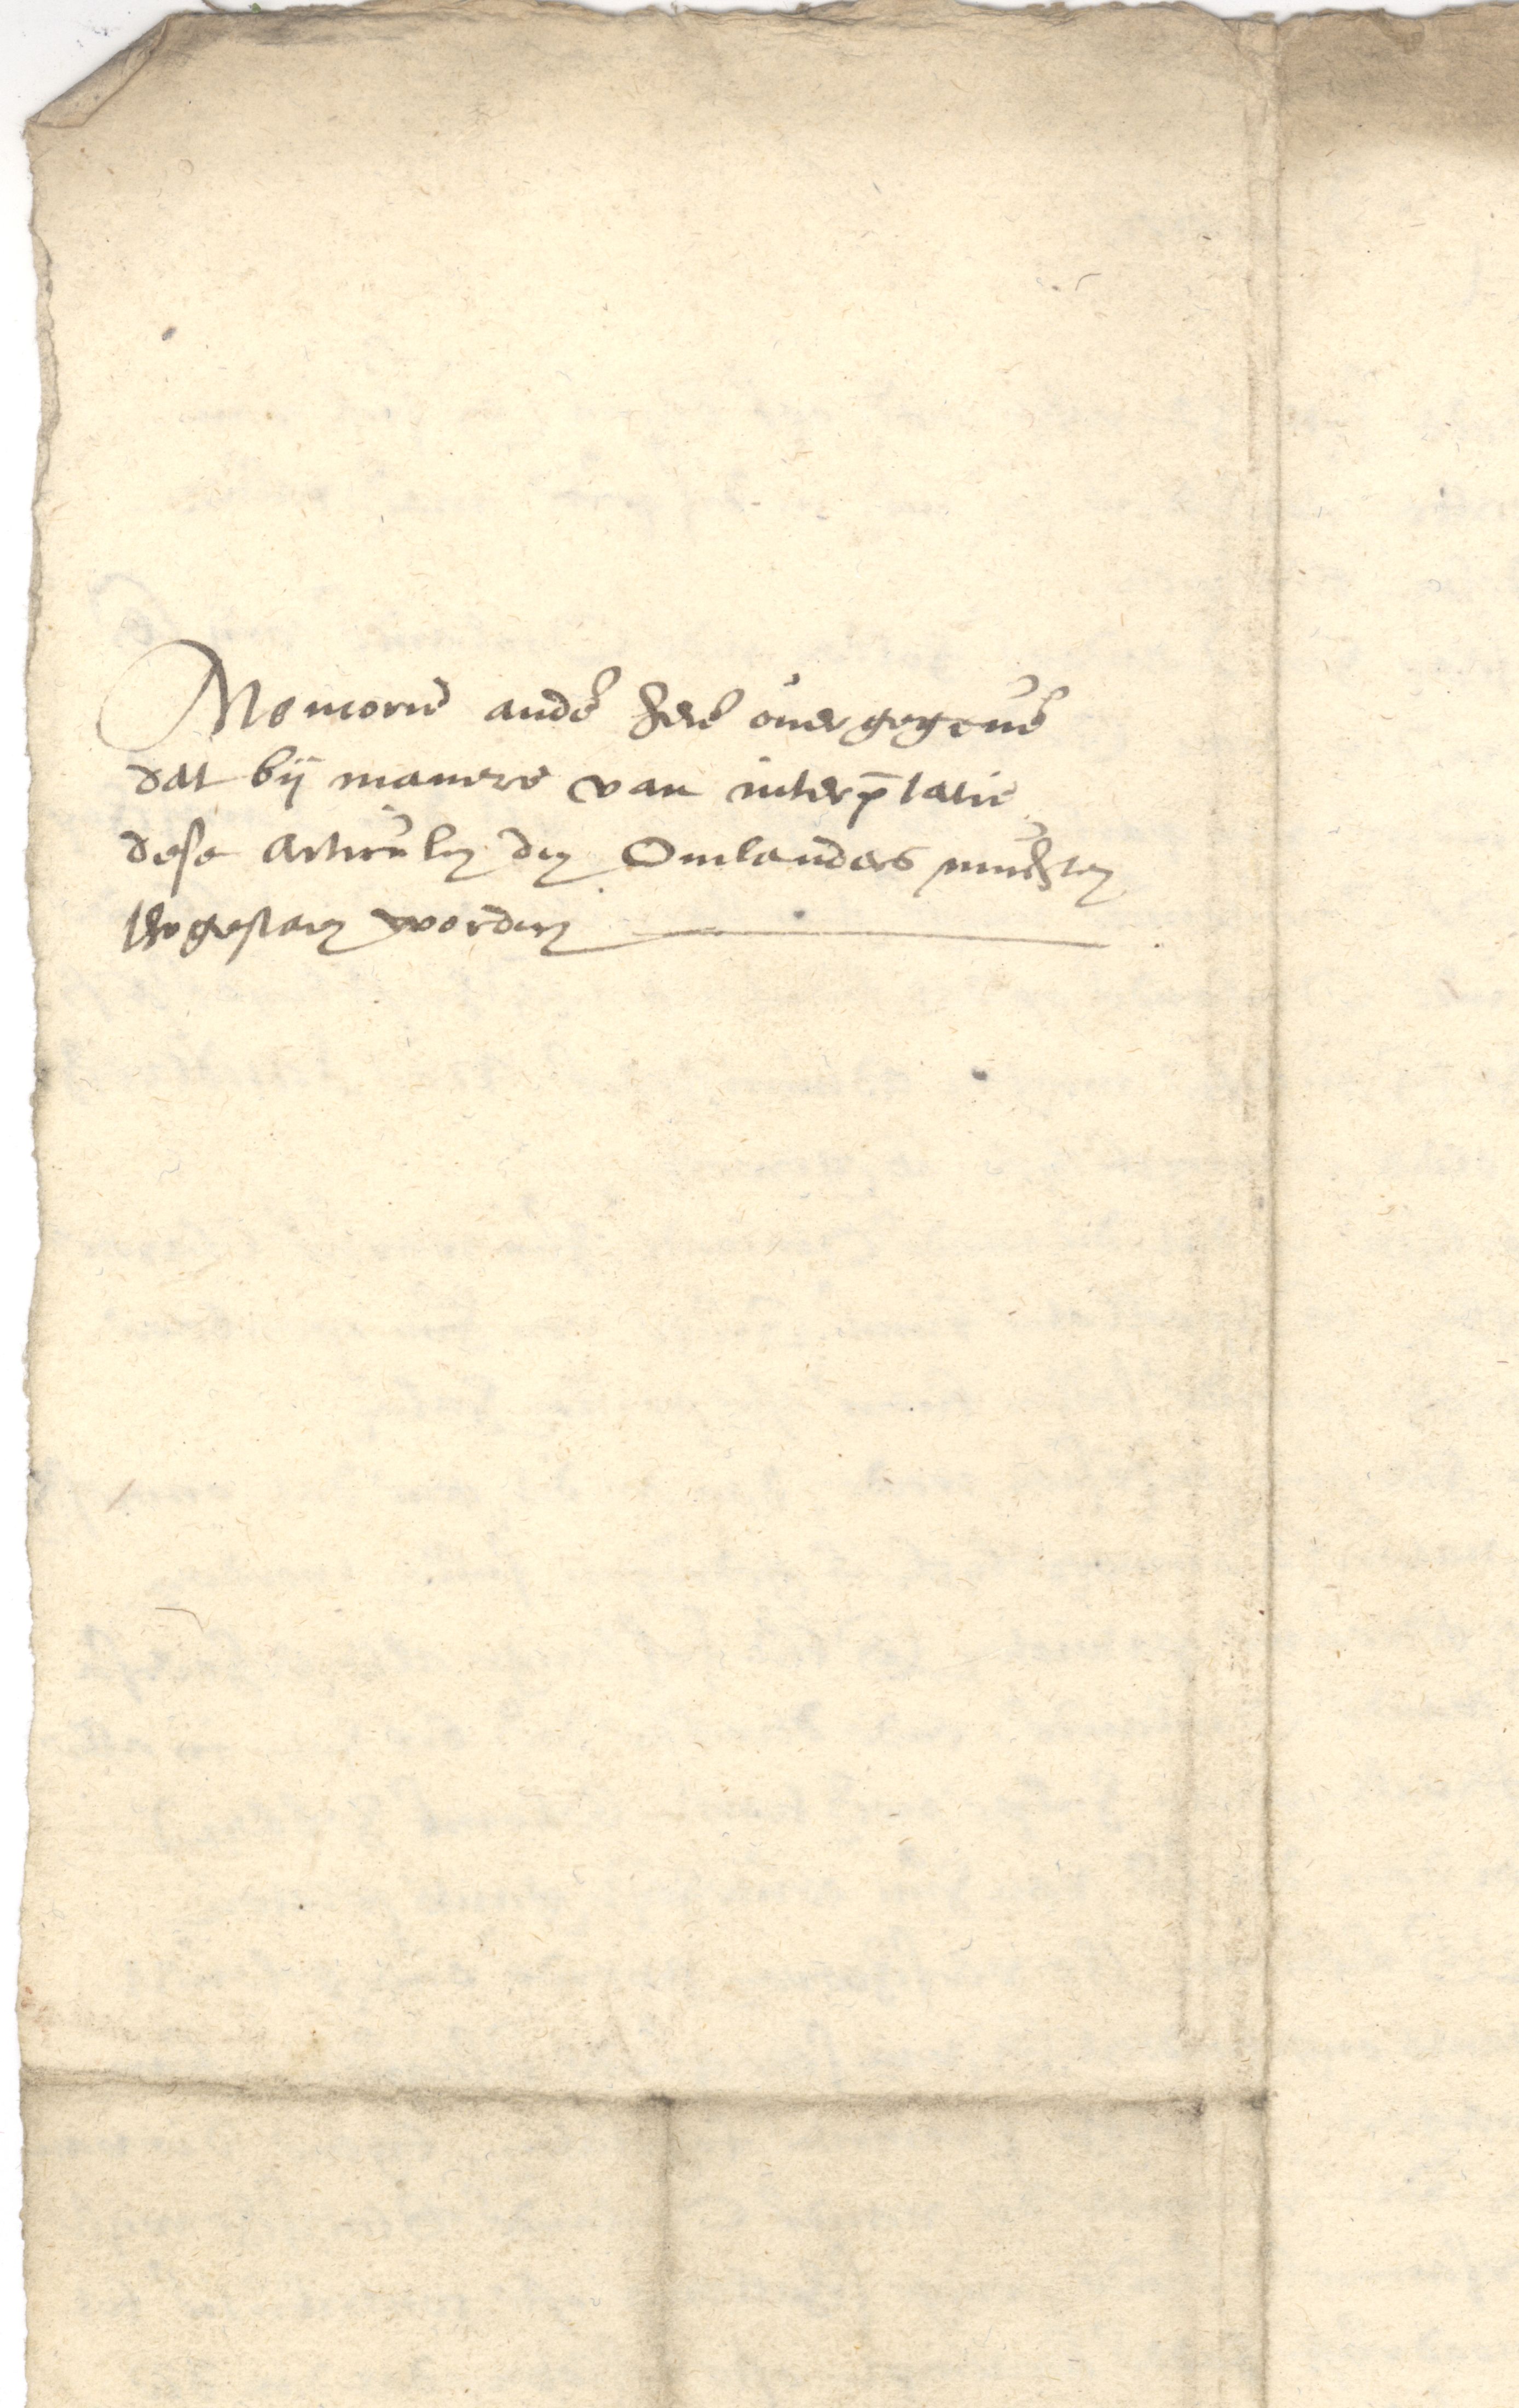 Memorie anden heren ouergegeuen
dat bij maniere van interpretatie
dese Articulen den Omlanders muchten
thogestaen worden